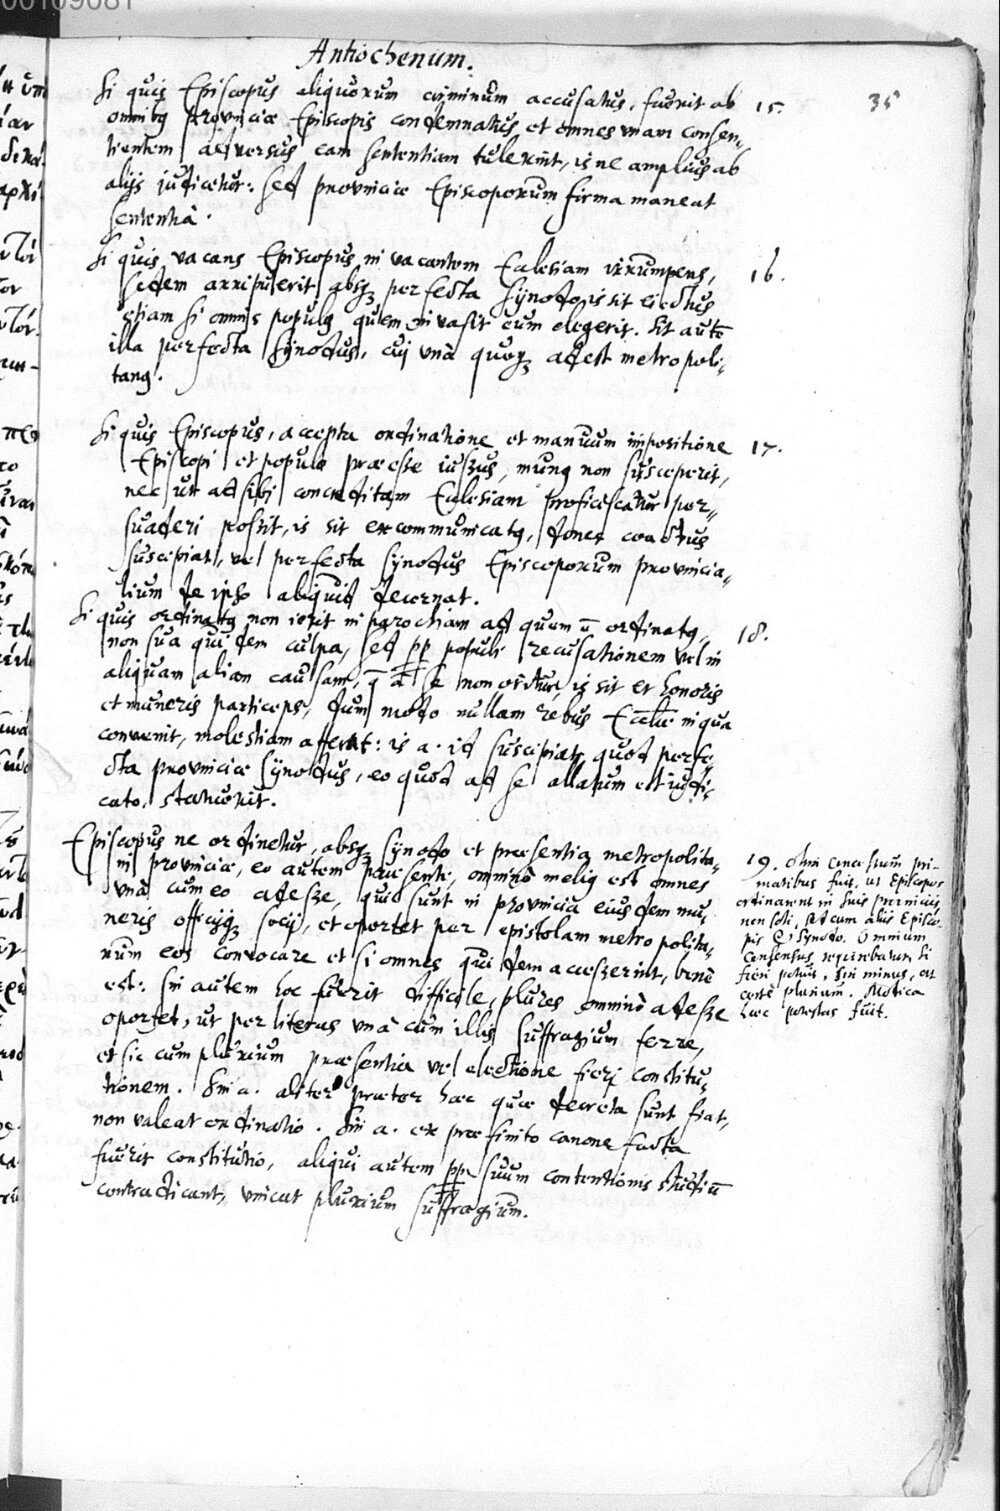 00109081
Antiochenum.
35
Si quis Episcopus aliquorum criminum accusatus, fuerit ab 15.
omnibꝫ provinciæ Episcopis condemnatus et omnes unam consen„
tientem adversus eam sententiam tulerint, is ne amplius ab
alijs judicetur: sed provinciæ Episcoporum firma maneat
sententia.
Si quis vacans Episcopus in vacantem Ecclesiam irrumpens, 16.
sedem arripuerit absqꝫ perfecta synodo, is sit eiectus
etiam si omnis populꝰ quem invasit eum elegerit. Sit autē
illa perfecta synodus, cui unà quoqꝫ adest metropoli„
tanꝰ.
Si quis Episcopus, accepta ordinatione et manuum impositione 17.
Episcopi et populo præesse iussus, munꝰ non susceperit,
nec ut ad sibi concreditam Ecclesiam proficiscatur per„
suaderi possit, is sit excommunicatꝰ, donec coactus
suscipiat, vel perfecta synodus Episcoporum provincia„
lium de ipso aliquid decernat.
Si quis ordinatꝰ non ierit in parochiam ad quam ē ordinatꝰ, 18.
non sua quidem culpa, sed pp̄ populi recusationem vel in
aliquam aliam causam, q̄ à se non oritur, is sit et honoris
et muneris particeps, dum modo nullam rebus Eccłiæ in qua
convenit, molestiam afferat: is a. id suscipiat, quod perfe„
cta provinciæ synodus, eo quod ad se allatum est iudi„
cato, statuerit.
Episcopus ne ordinetur, absqꝫ synodo et præsentia metropolita„
ni provinciæ, eo autem præsente, omnino meliꝰ est omnes
unà cum eo adesse, qui sunt in provincia eiusdem mu„
neris officijqꝫ socij, et oportet per epistolam metropolita„
num eos convocare et si omnes quidem accesserint, bene
est: Sin autem hoc fuerit difficile, plures omnino adesse
oportet, ut per literas unà cum illis suffragium ferre,
et sic cum plurium præsentia vel electione fieri constitu„
tionem. Sin a. aliter præter hæc quæ decreta sunt fiat,
non valeat ordinatio. Sin a. ex præfinito canone facta
fuerit constitutio, aliqui autem pp̄ suum contentionis studiū
contradicant, vincat plurium suffragium.
19. Olim
matibus fuit, ut Episcopos
ordinarent in suis provinciis
non soli, sed cum aliis Episco„
pis & Synodo. Omnium
Consensus requirebatur, si
fieri potuit, sin minus, at
certè plurium.
hæc potestas fuit.